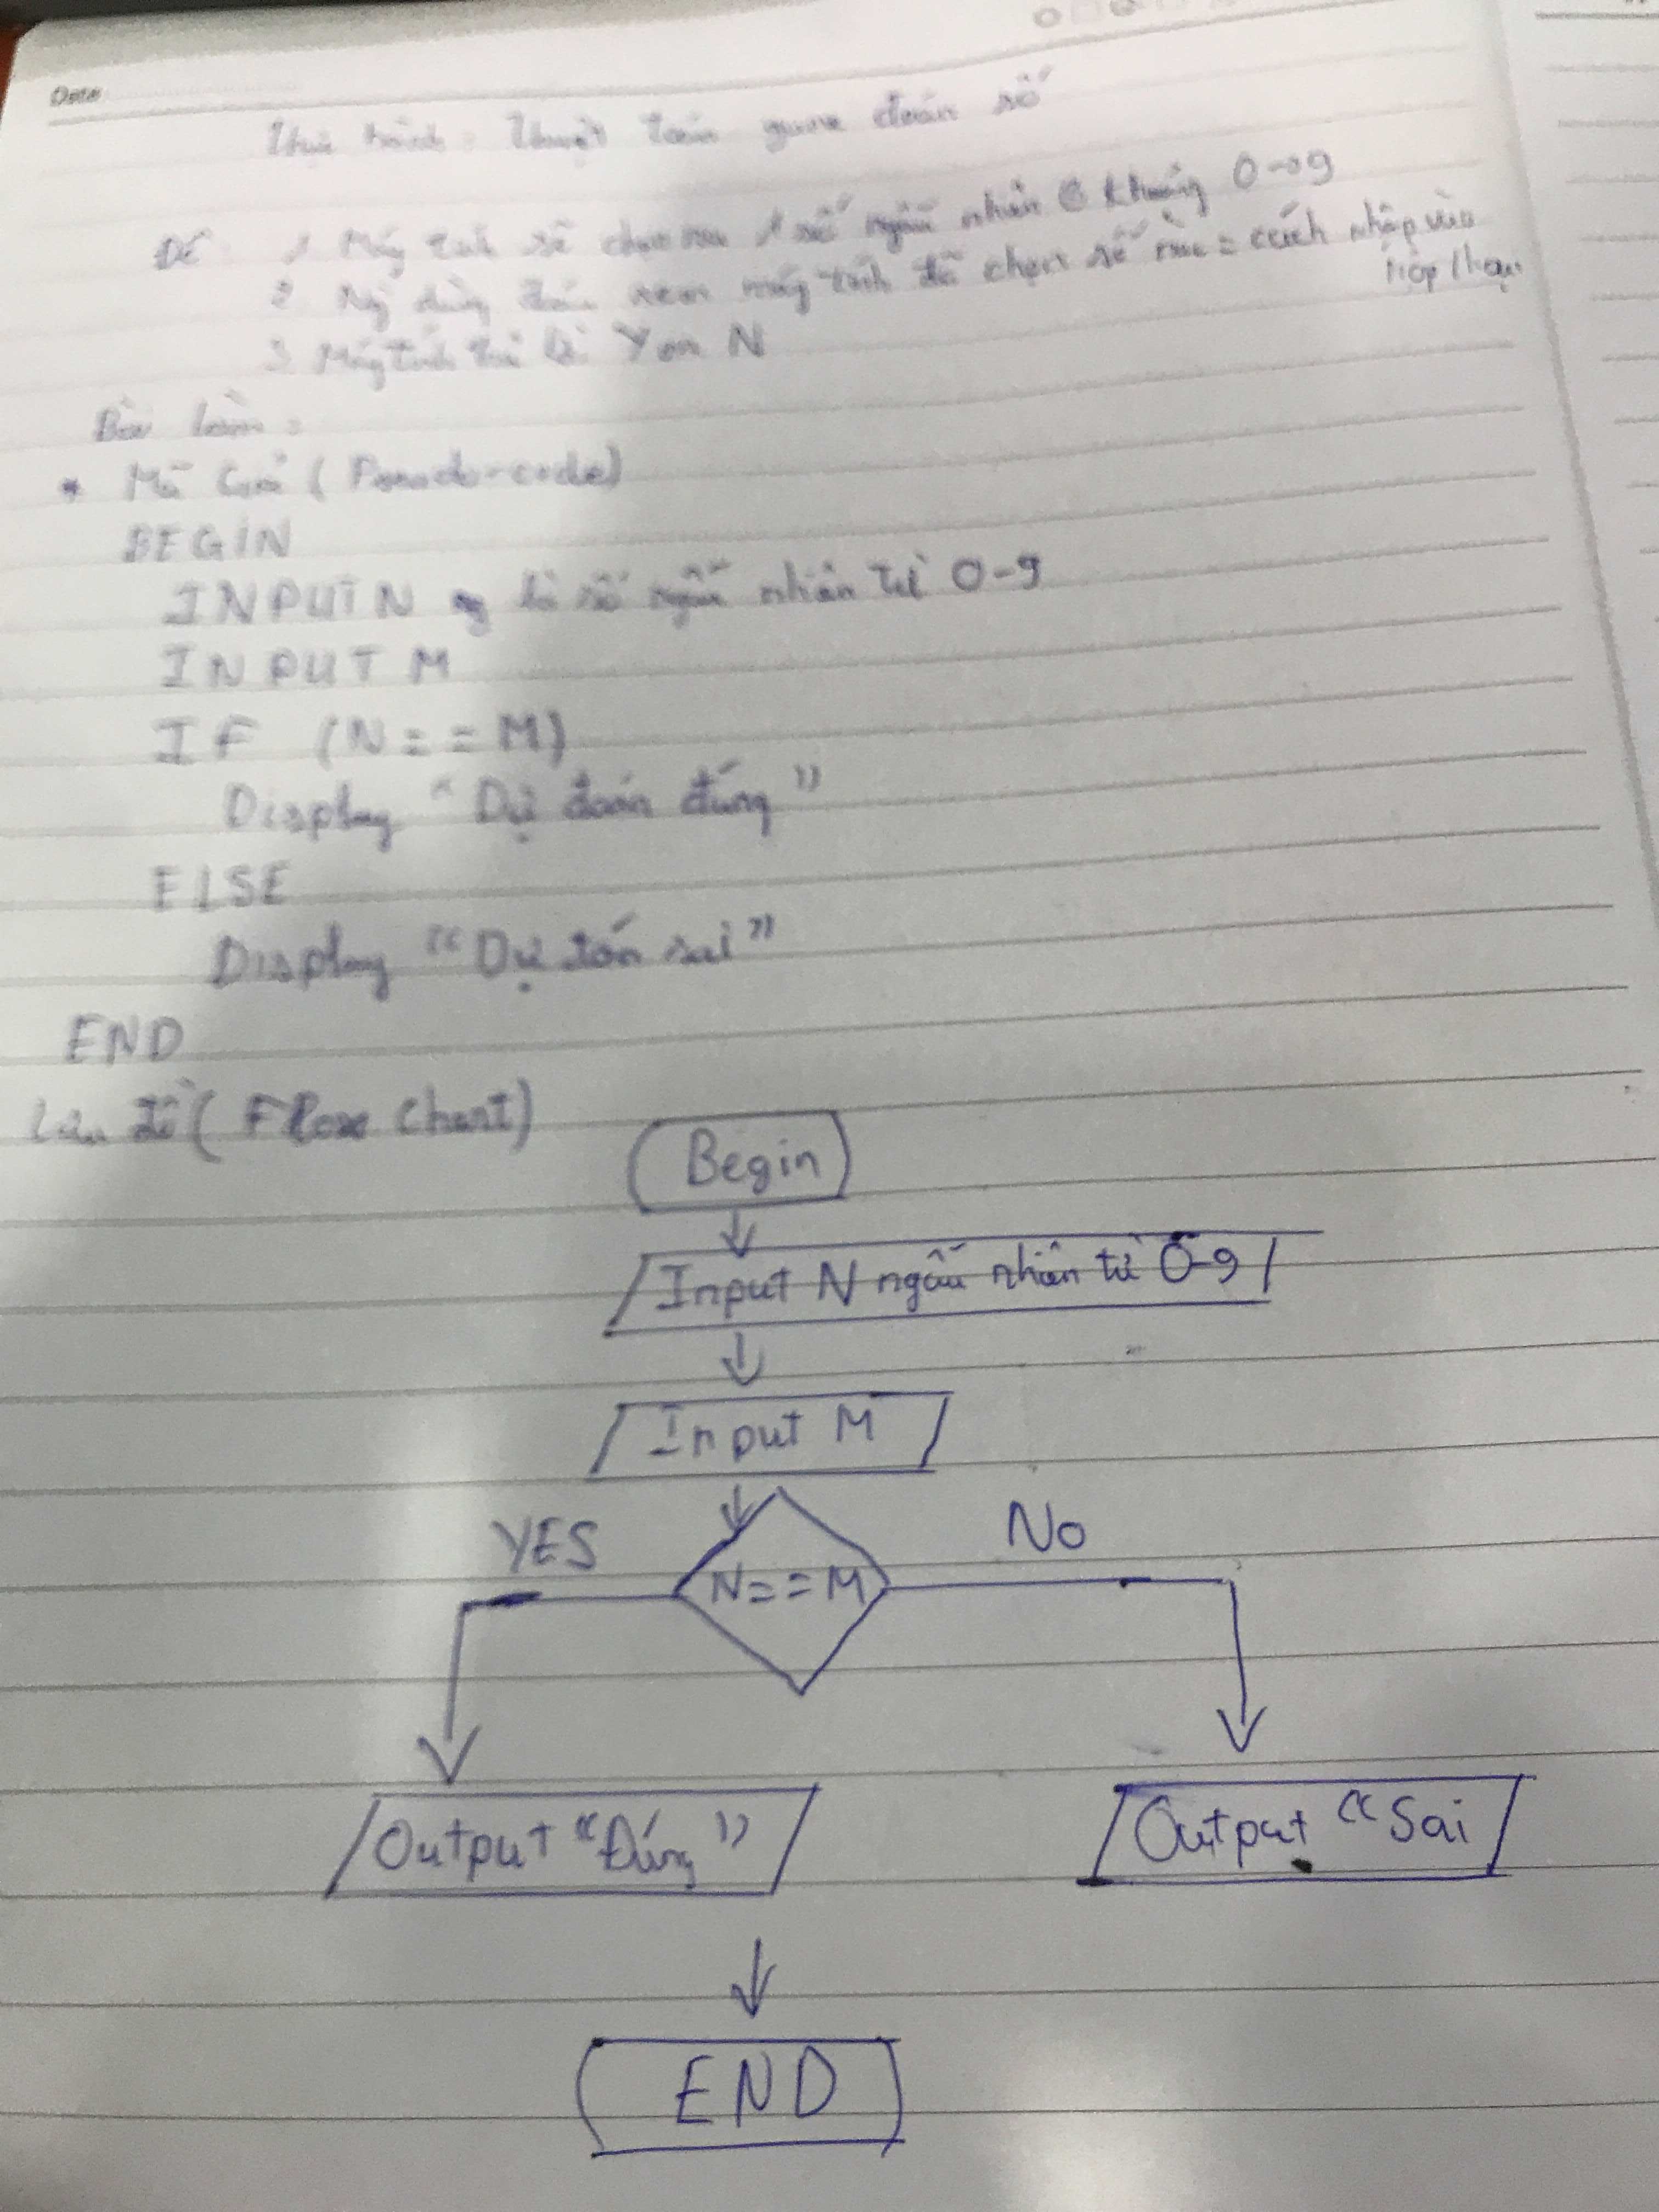 Date
Thực hành: Thuật toán game đoán số
Đề: 1. Máy tính sẽ chọn ra 1 số ngẫu nhiên khoảng 0→9
2. Ng dùng đoán xem máy tính đã chọn số nào = cách nhập vào
hộp thoại
3. Máy tính trả lời Y or N
Bài làm:
* Mã Giả (Pseudo-code)
BEGIN
INPUT N là số ngẫu nhiên từ 0-9
INPUT M
IF (N==M)
Display "Dự đoán đúng"
ELSE
Display "Dự đón sai"
END
Lưu đồ (Flow Chart)
Begin
Input N ngẫu nhiên từ 0-9
Input M
YES
N==M
No
Output "Đúng"
Output "Sai
END